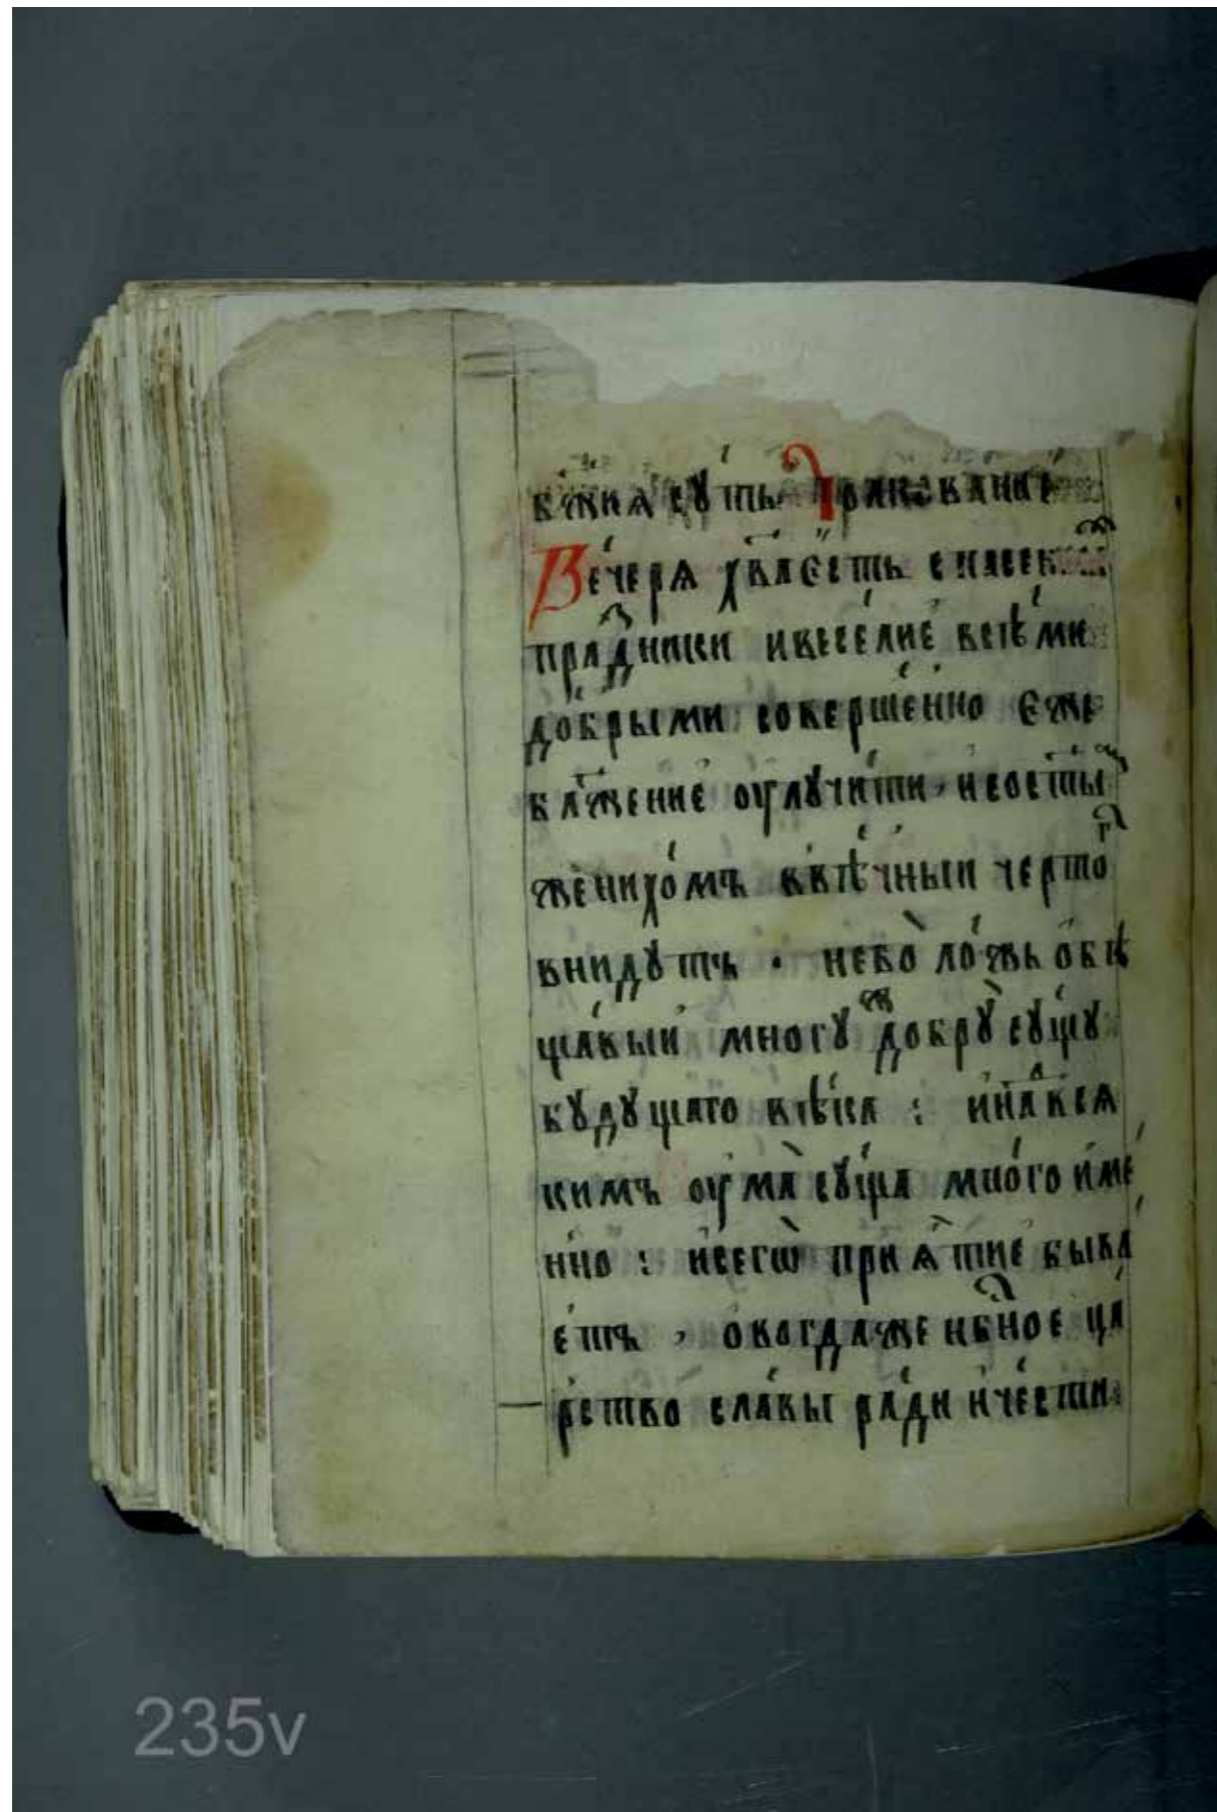 бж҃иѧ сꙋ́ть Толкование
Ве́черѧ хв҃а є҆́сть
пра́здники и҆весе́лие всѣ́ми
до́брыми соверше́нно є҆́же
бл҃же́ние оу҆лꙋчи́ти, и҆сост҃ы
женихо́мъ ввѣ́чныи черто́г
внидꙋтъ · небо̀ ло́жь ѻ҆бѣ
ща́выи мно́гꙋ добрꙋ̀ сꙋ́щꙋ
бꙋдꙋщаго вѣ́ка : и҆на́ковѧ
кимъ оу҆ма̀ сꙋ́ща мно́го и҆ме́
нно : и҆сегѡ̀ приѧ́тие быва́
етъ , ѻ҆вогдаже нбⷭ҇ное ца́
рство сла́вы ра́ди и҆че́сти
235v